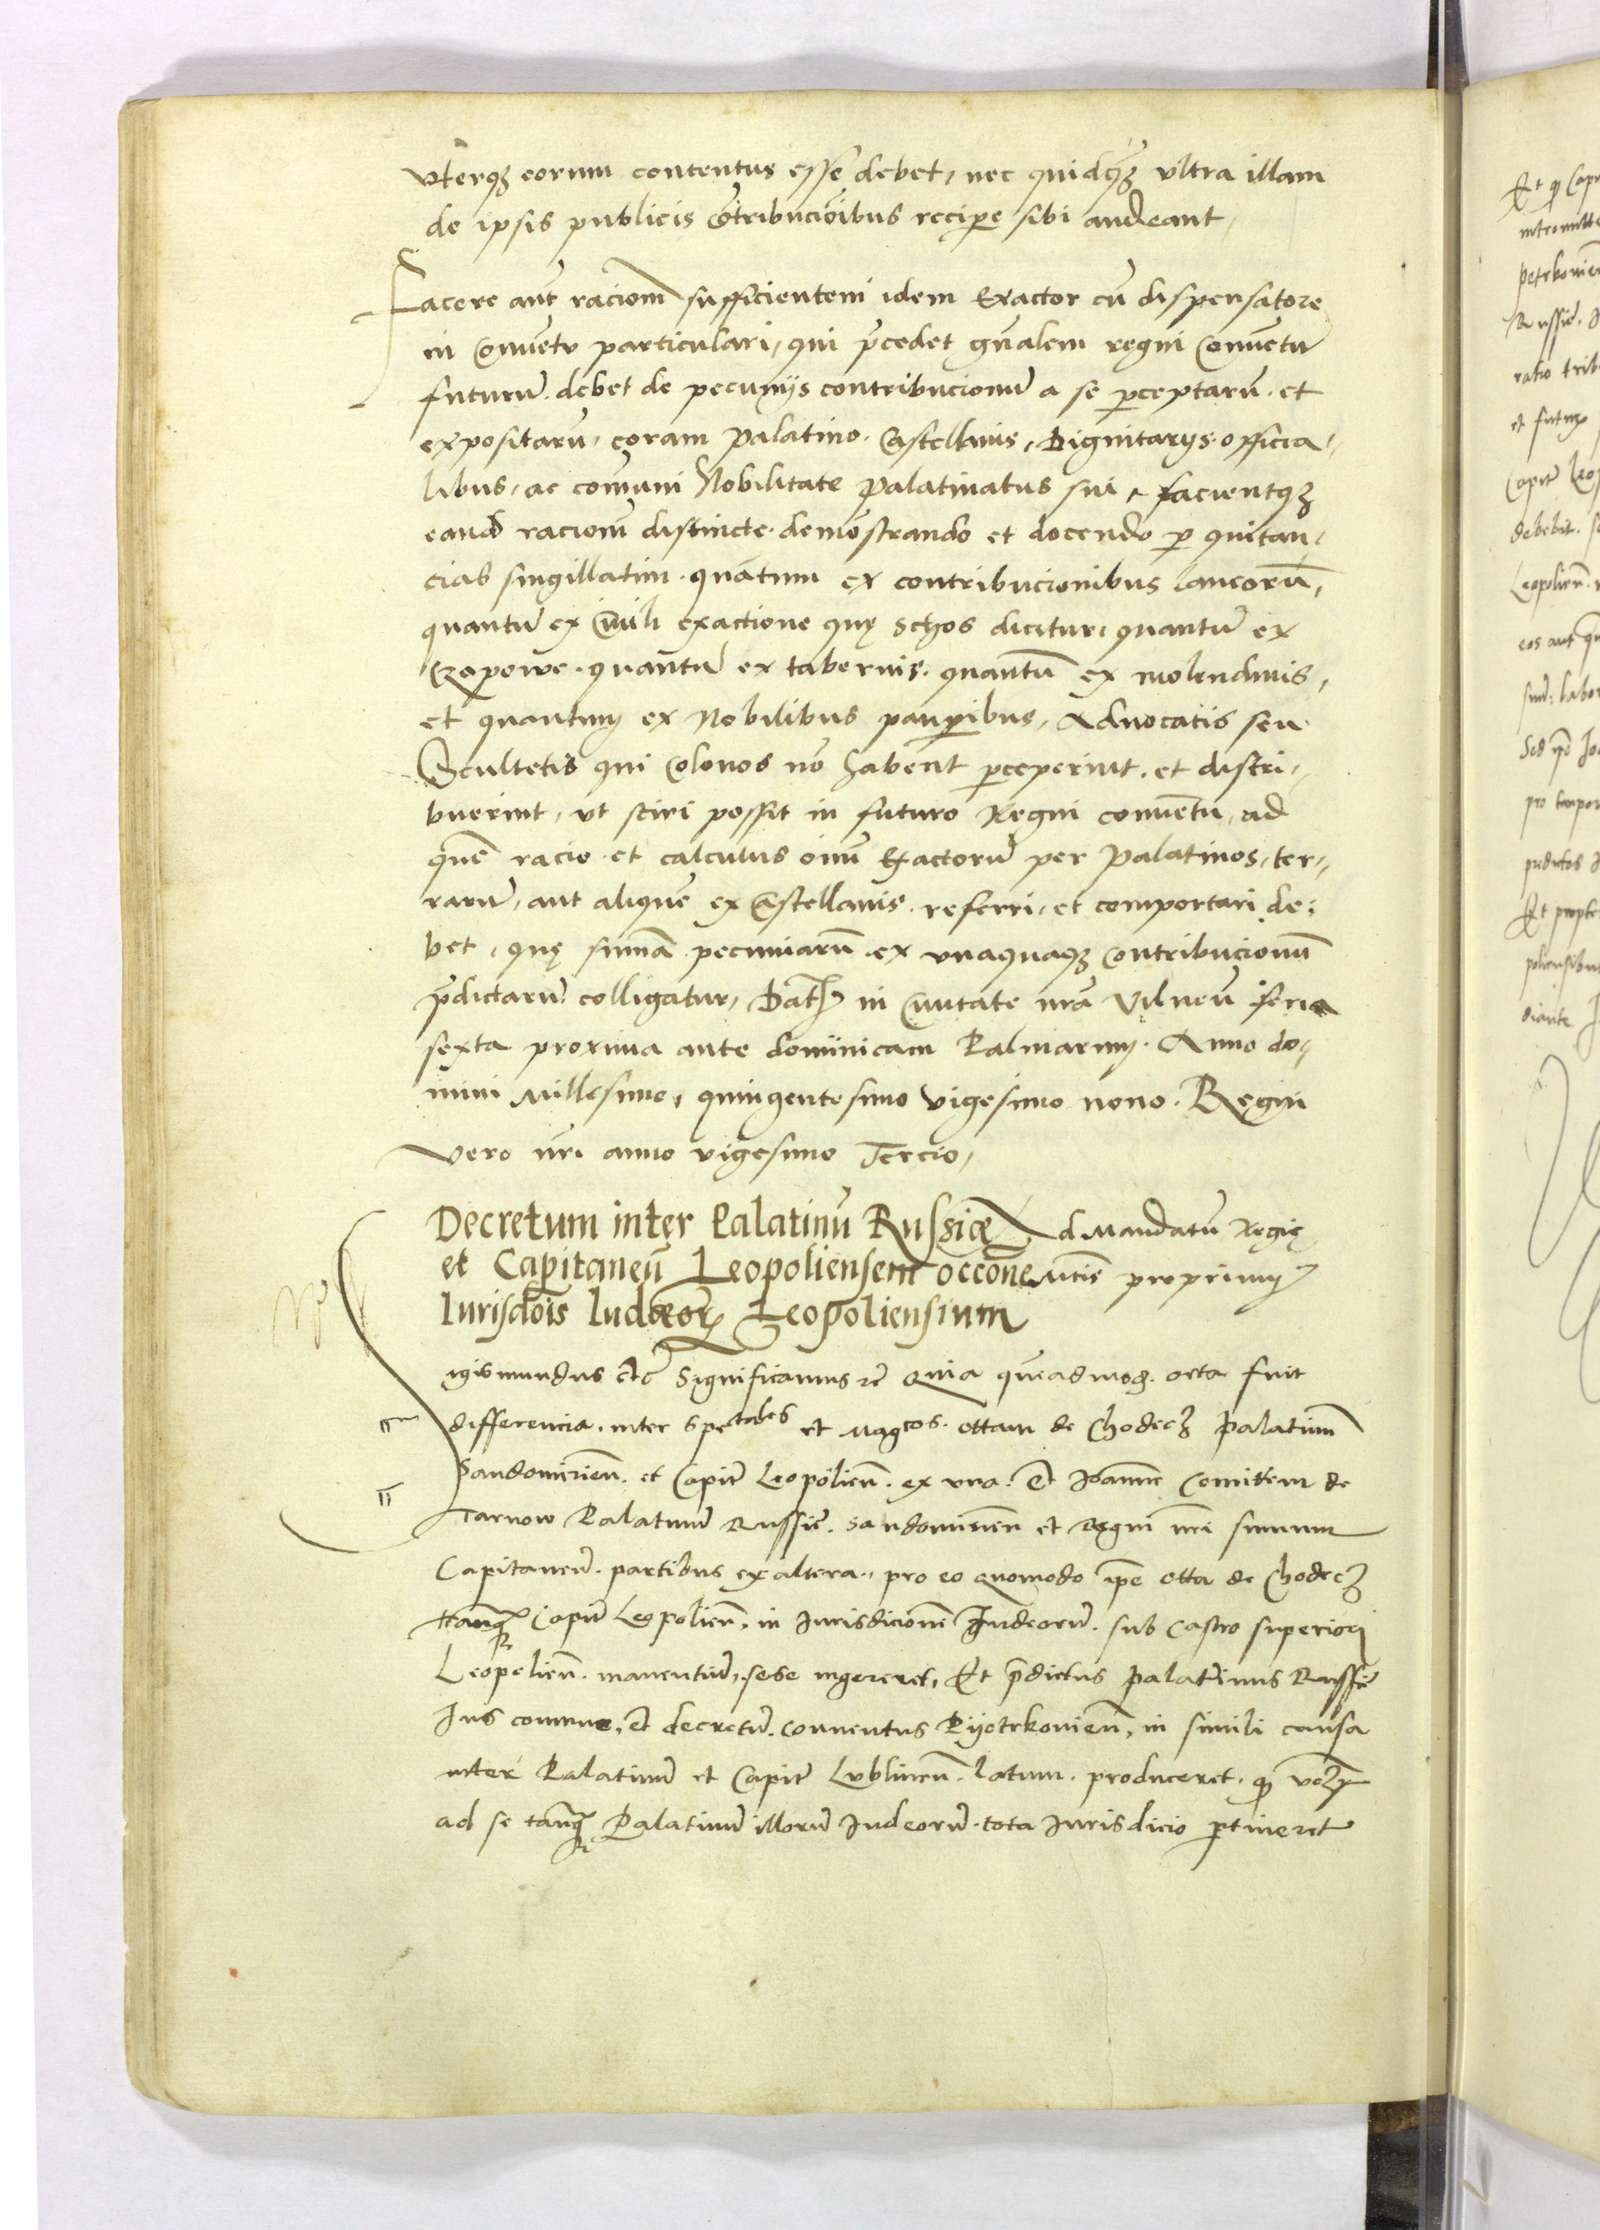 vterqʒ eorum contentus esse debet, nec quidqʒ vltra illam
de ipsis publicis cōtribucioībus recipe sibi audeant,
Facere aūt racionē sufficientem idem Exactor cū dispensatore
in Conuētv particulari, qui p̄cedet gn̄alem regni Conuētū
futurū debet de pecunijs contribucionū a se perceptarū et
expositarū, coram Palatino, Castellanis, Dignitarijs officia-
libus, ac cōmuni Nobilitate Palatinatus sui, facientqʒ
eand racionē distincte demōstrando et docendo p quitan-
cias singillatim quātum ex contribucionibus laneorū,
quantū ex Ciuili exactione quę schos dicitur, quantū ex
Czopowe quantū ex tabernis quantū ex molendinis,
et quantum ex Nobilibus pauperibus, Aduocatis seu
Scultetis qui Colonos nō habent perceperint et distri-
buerint, vt sciri possit in futuro Regni conuētu, ad
quē racio et calculus oīm Exactorū per Palatinos, ter-
rarū, aut aliquē ex Castellanis referri, et comportari de-
bet, quę sum̄a pecuniarū ex vnaquaqʒ Contribucionū
p̄dictarū colligatur, Datū in Ciuitate nr̄a Vilnen̄ feria
sexta proxima ante dominicam Palmarum. Anno do-
mini Millesimo, quingentesimo vigesimo nono. Regni
vero nr̄i anno vigesimo Tercio,
Decretum inter Palatinū Russiæ Ad Mandatū Regię
et Capitaneū Leopoliensem occōne Mtis proprium
Iurisdōis Iudæor Leopoliensium
igismundus etc Significamus etc Quia queadmod. orta fuit
differencia inter spectabiles et Magcos. ottam de Chodecʒ Palatinū
Sandomirien̄. et Capit Leopolien̄. ex vna. Et Ioannē Comitem de
Tarnow Palatinū Russiē. Sandomirien̄ et Regni nr̄i summum
Capitaneū. partibus ex altera, pro eo quomodo ipe otta de Chodecʒ
tanq Capit Leopolien̄, in Iurisdicionē Iudeorū. sub castro superiori
Leopolien̄. manentiū, sese ingereret, Et p̄dictus Palatinus Russiē
Ius commune, et decretū conuentus Pijotrkowien̄, in simili causa
inter Palatinū et Capit Lublinen̄. latum. produceret.
ad se tanq Palatinū illorū Iudeorū tota Iurisdicio ptineret